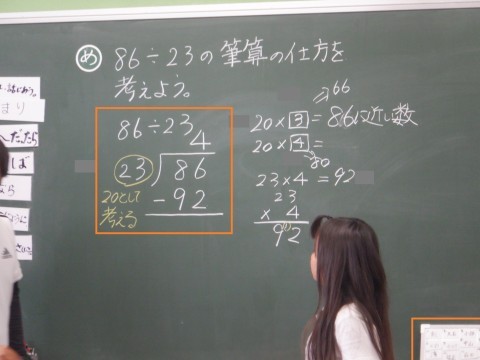 め 86÷23の筆算の仕方を
考えよう。
86÷23
4
23)86
-92
20として
考える
⇒66
20×3=86に近い数
20×4=
80
23×4=92
23
×4
92
まり
へだったら
しば
なら